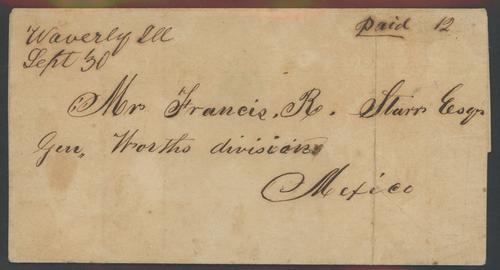 Waverly Ill
Sept 30
Paid 12
Mr Francis. R. Starr Esqr
Gen, Worths division
Mexico